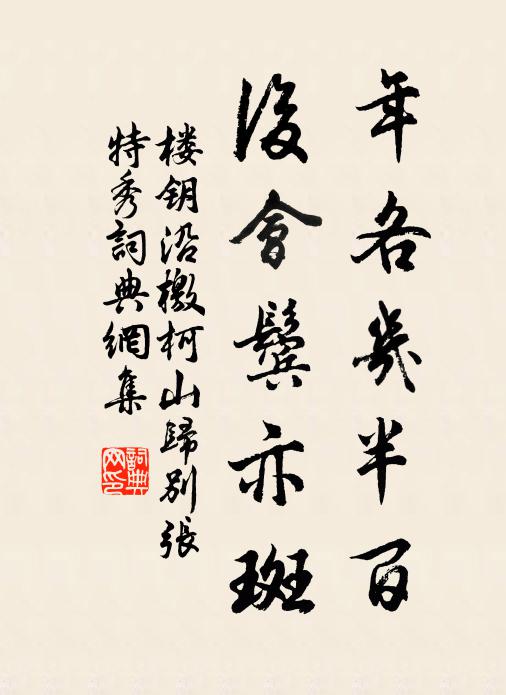 年各幾半百
後會鬓亦斑
楼钥沿檄柯山歸别張
特秀詞典網集
詞典网印